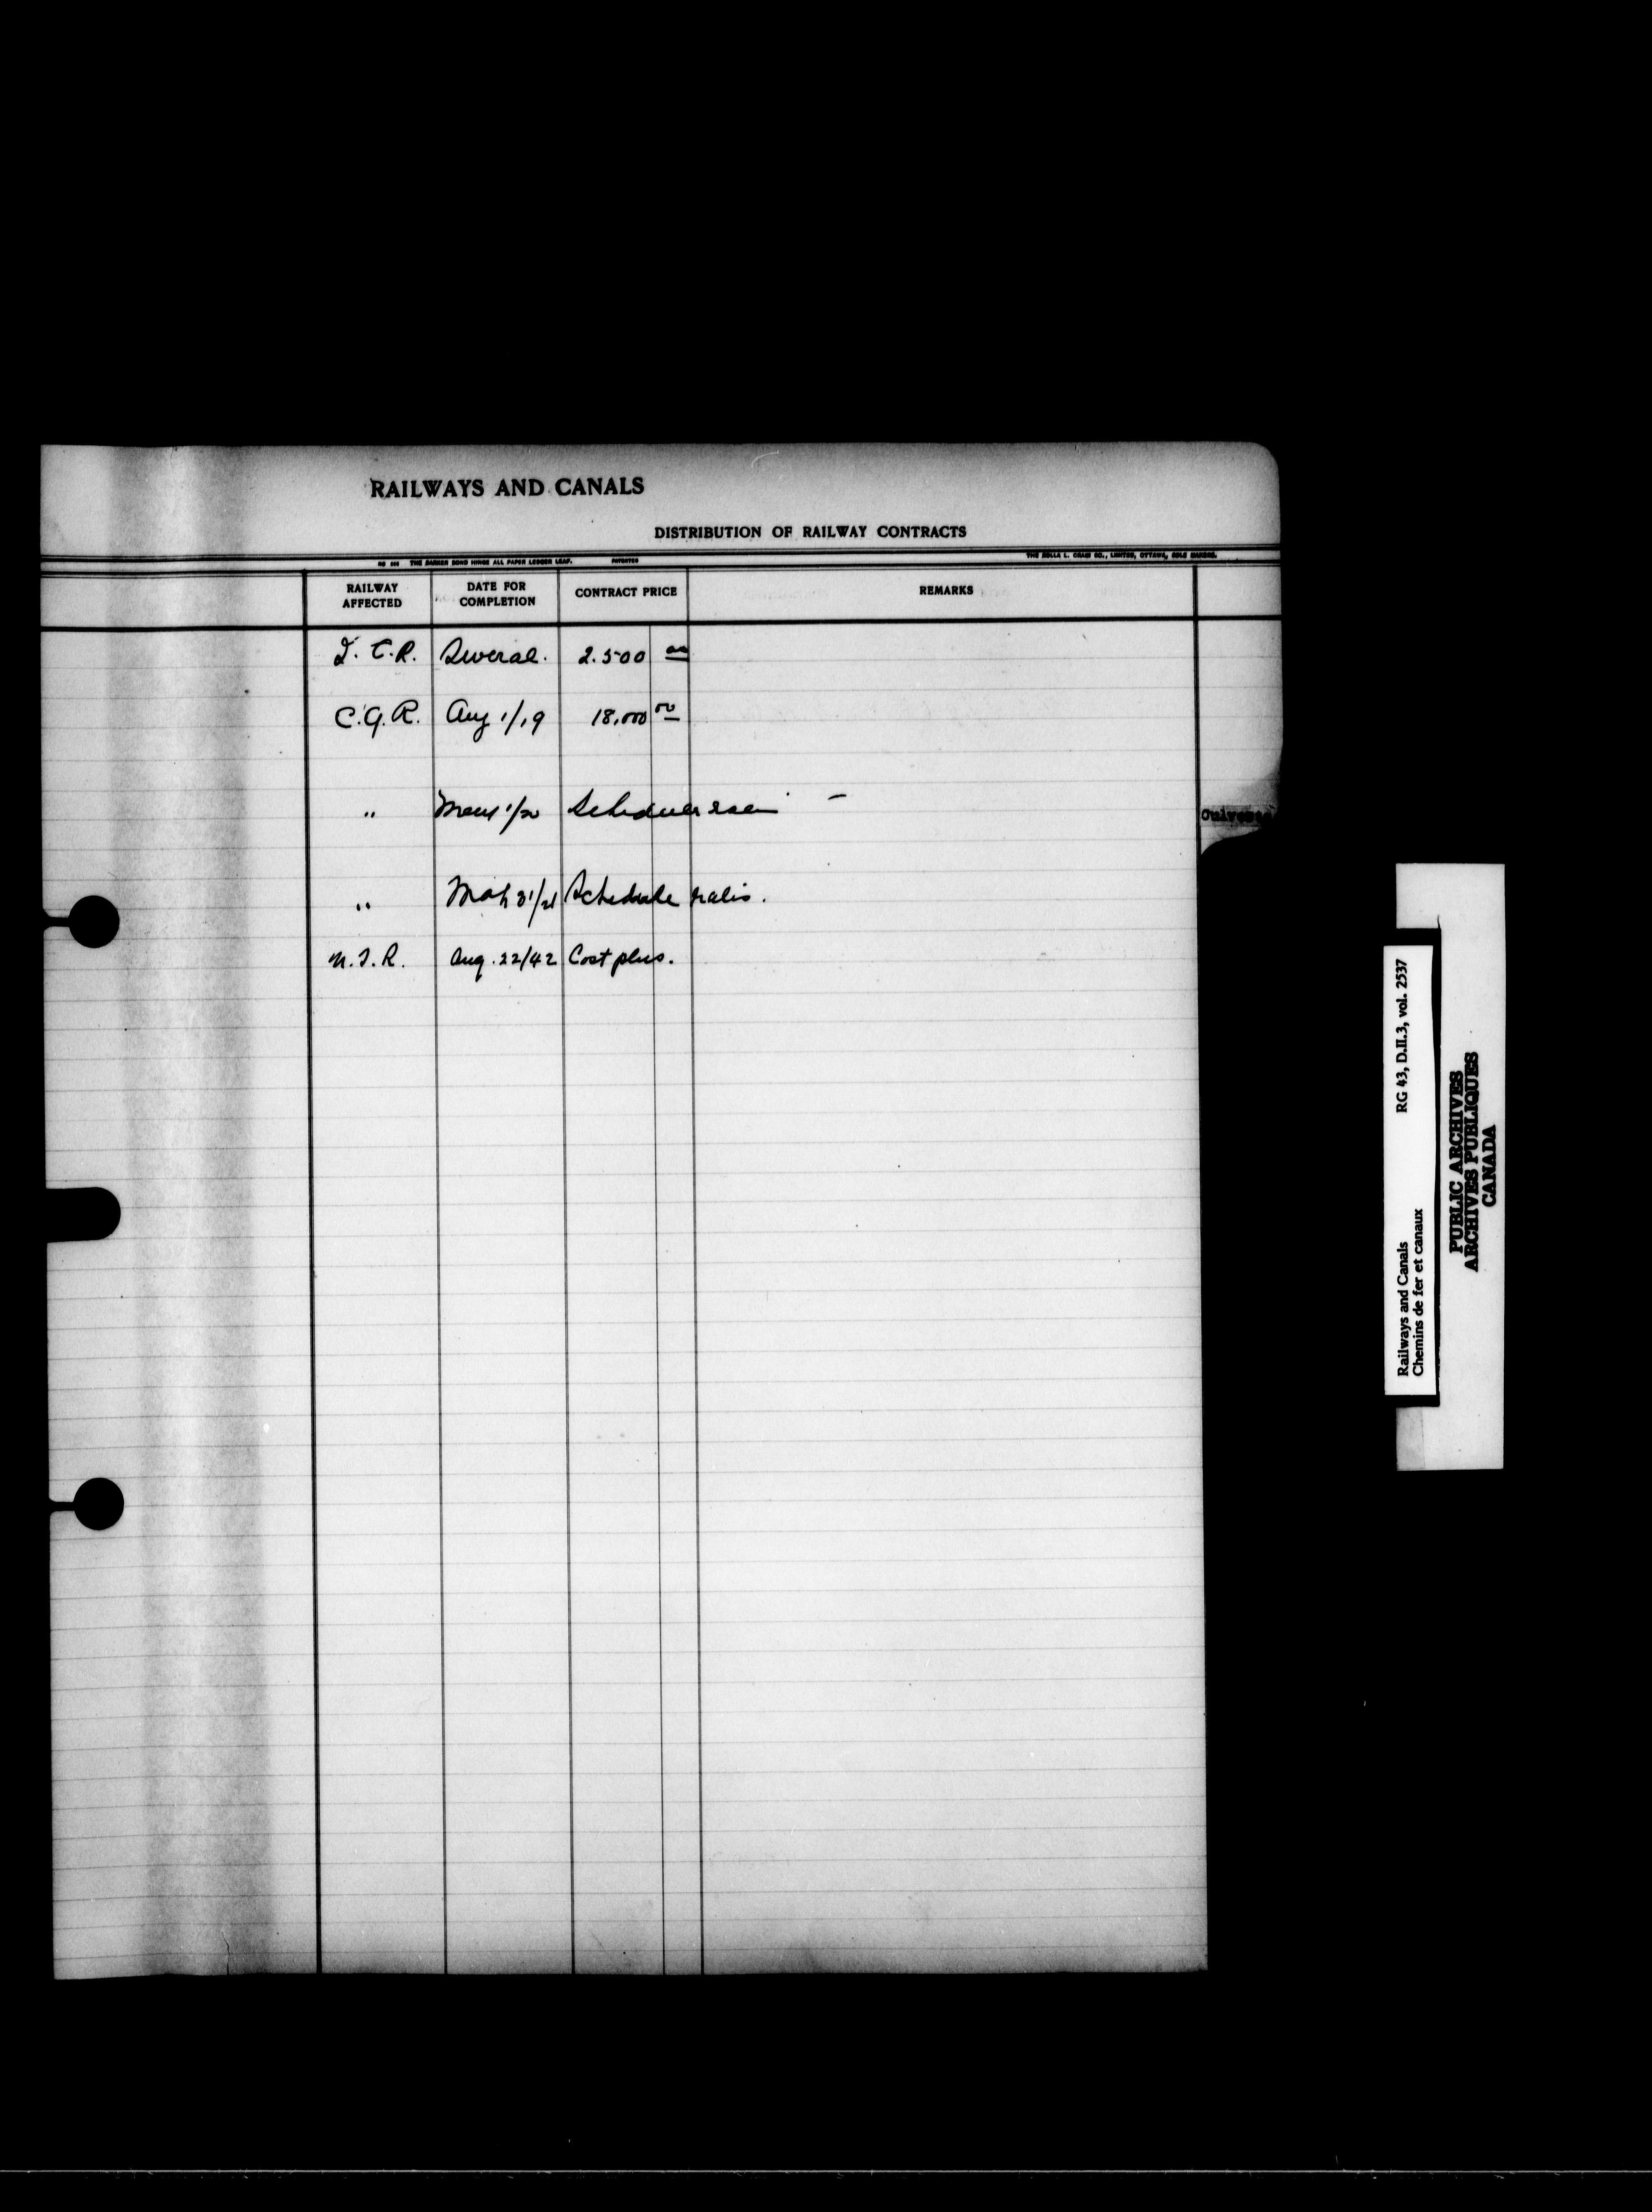 RAILWAYS AND CANALS
DISTRIBUTION OF RAILWAY CONTRACTS
THE BARKER BOND HINGE ALL PAPER LEDGER LEAF. PATENTED THE ROLLA L. CRAIN CO., LIMITED, OTTAWA, SOLE MAKERS.
RAILWAY AFFECTED DATE FOR COMPLETION CONTRACT PRICE REMARKS
I.C.R. Several. 2.500 00
C.G.R. Aug 1/19 18,000 00
" 1/20 Schedule
" Mch 31/21 Schedule rates.
N.T.R. Aug. 22/42 Cost plus.
Railways and Canals RG 43, D.II.3, vol. 2537
Chemins de fer et canaux
PUBLIC ARCHIVES
ARCHIVES PUBLIQUES
CANADA